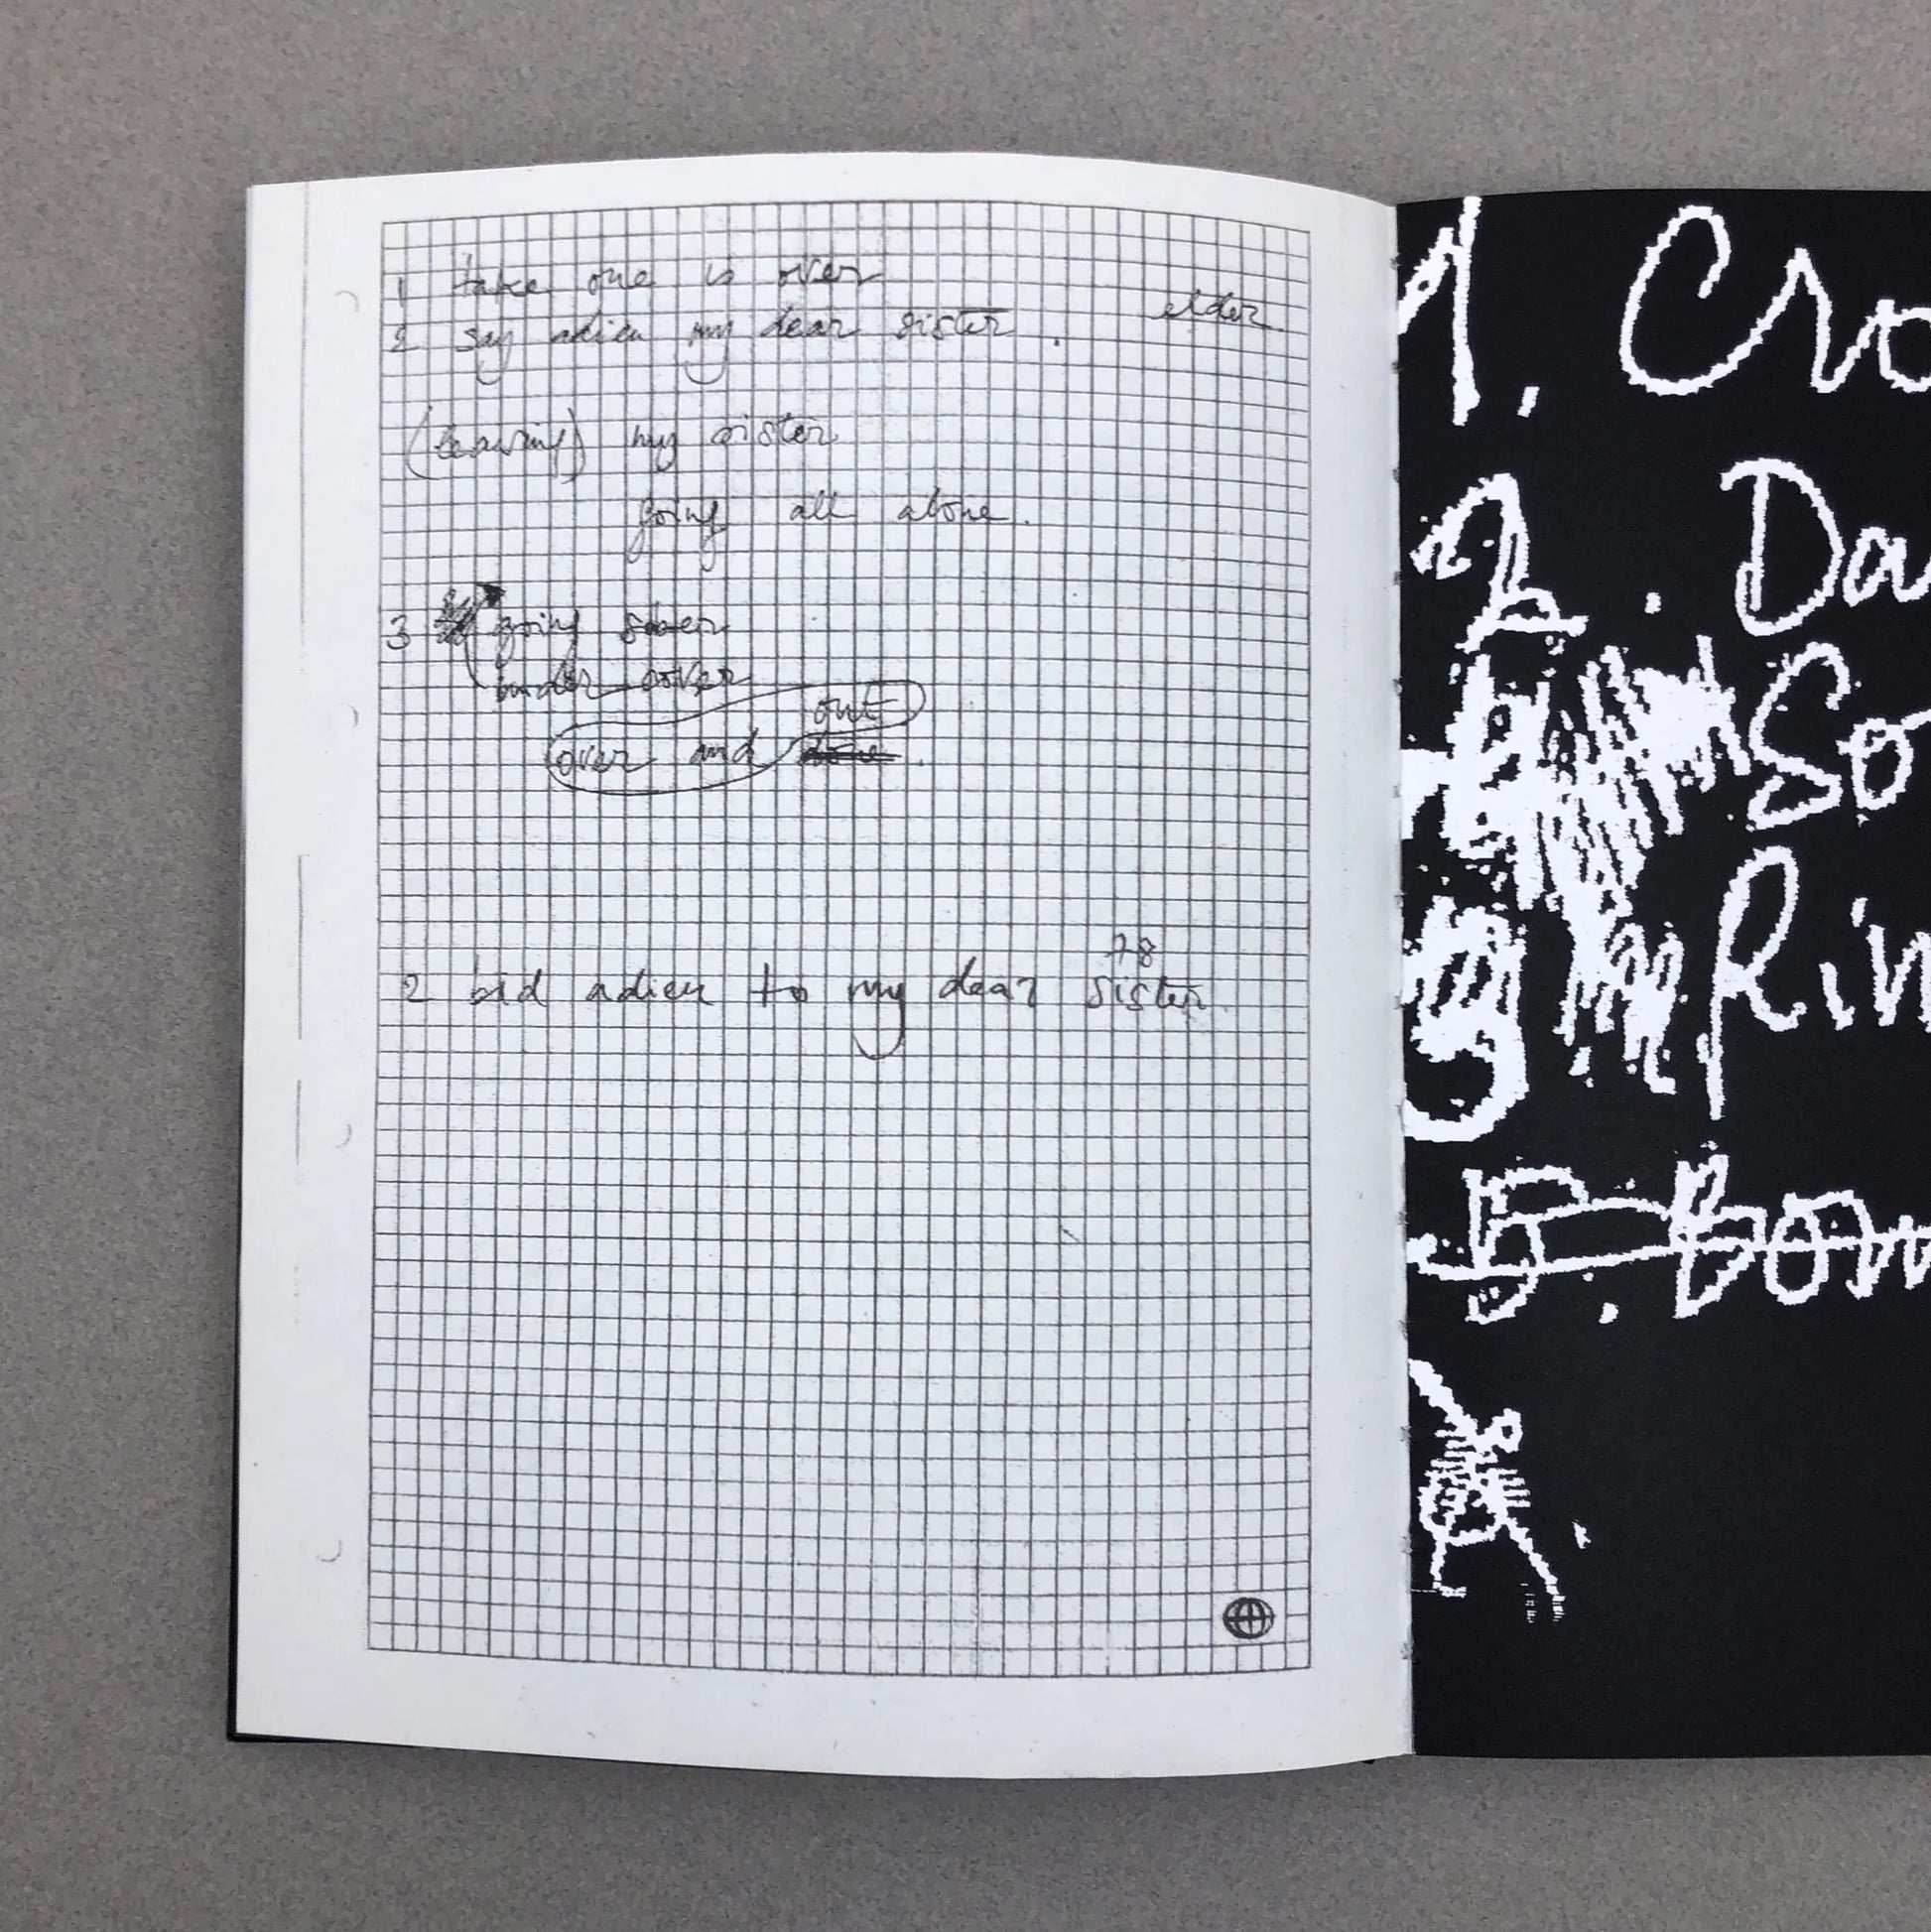 elder
1 take one is over
2 say adieu my dear sister.
(leaving) my sister
going all alone.
3 going sober
under cover
out
over and done.
78
2 bid adieu to my dear sister
1. Cro
2. Da
So
Rin
5. Bom